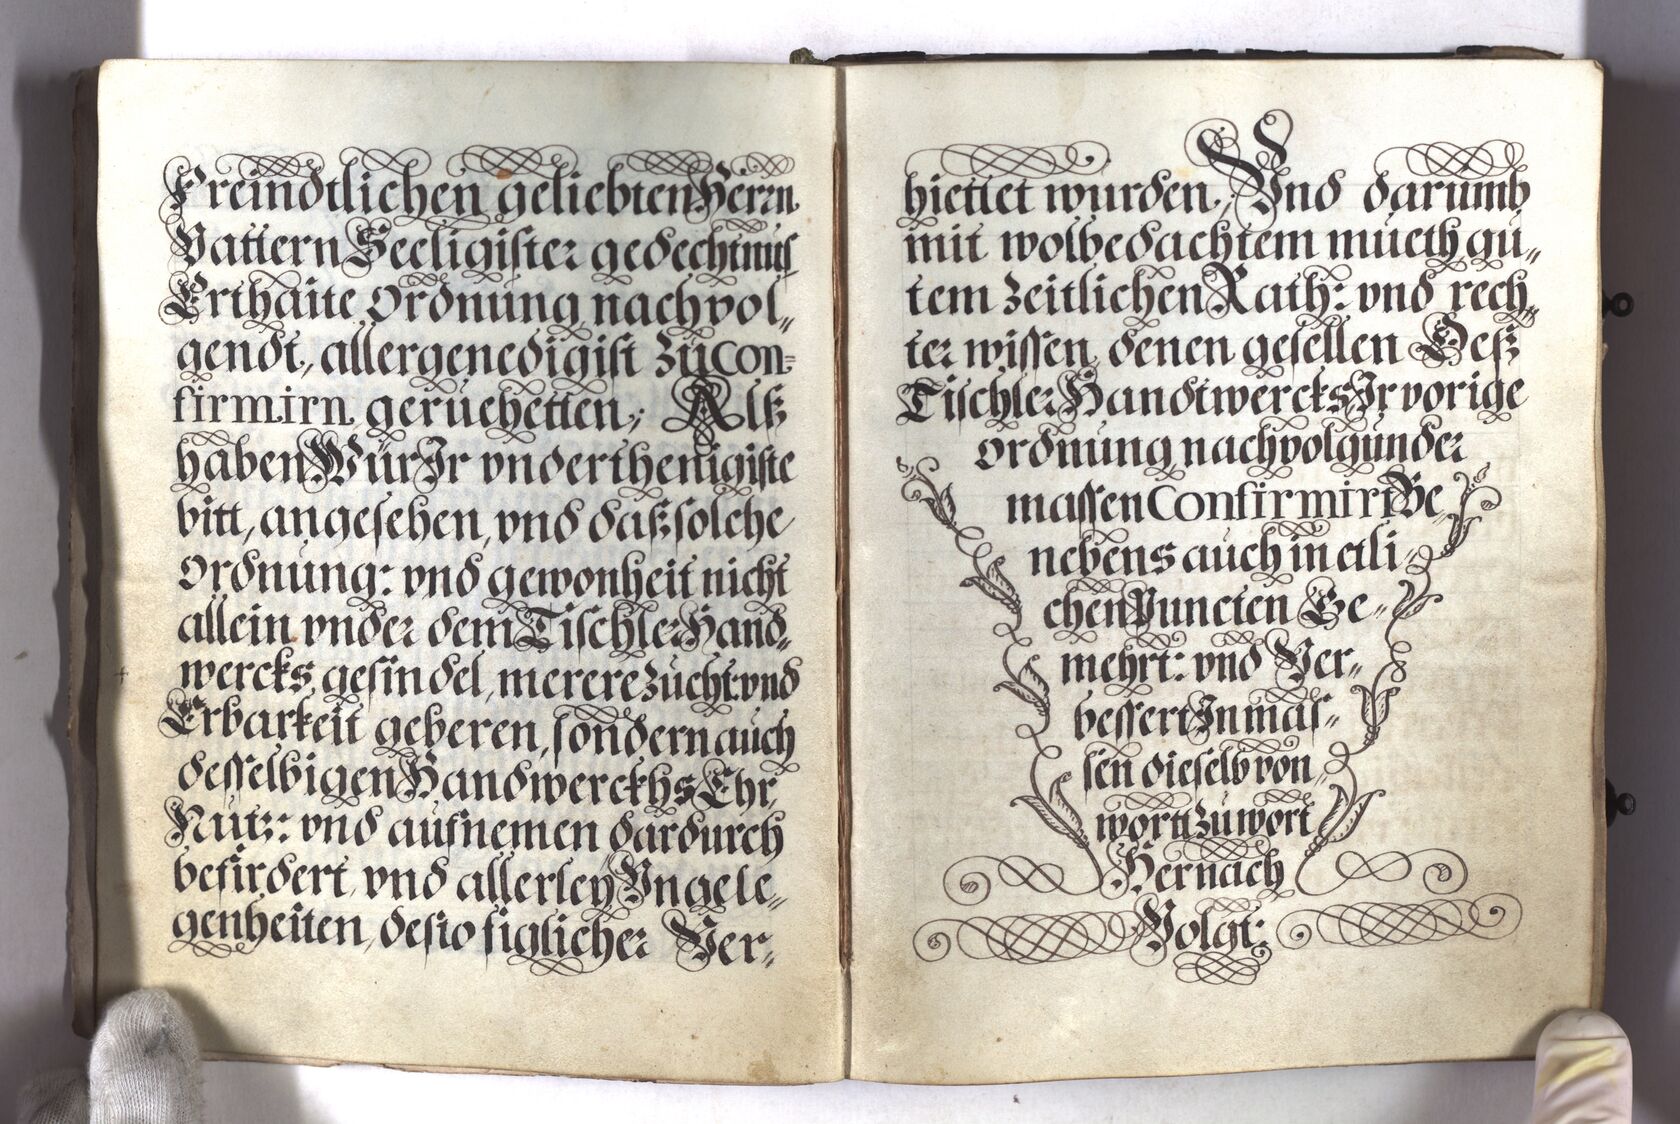 Freindtlichen geliebten Herrn
Vattern Seeligister gedechtnus
Erthailte Ordnung nachvol„
gendt, allergenedigist zu con„
firmirn geruehetten; Alß
haben Wür Ir vnderthenigiste
bitt, angesehen, vnd daß solche
Ordnung: vnd gewonheit nicht
allein vnder dem Tischler Hand„
wercks gesindel, merere zücht: vnd
Erbarkeit geberen, sondern auch
desselbigen Handwerckhs Ehr,
Nutz: vnd aufnemen dardurch
befürdert, vnd allerley Vngele„
genheiten, desto figlicher Ver„
hiettet wurden; Vnd darumb
mit wolbedachtem mueth, gu„
tem zeitlichen Rath: vnd rech„
ter wissen, denen gesellen Deß
Tischler Handtwercks Ir vorige
Ordnung nachvolgunder
massen Confirmirt Be
nebens auch in etli„
chen Puncten Ge„
mehrt: vnd Ver„
bessert Inmas„
sen dieselb von
wortt zu wort
Hernach
Volgt: